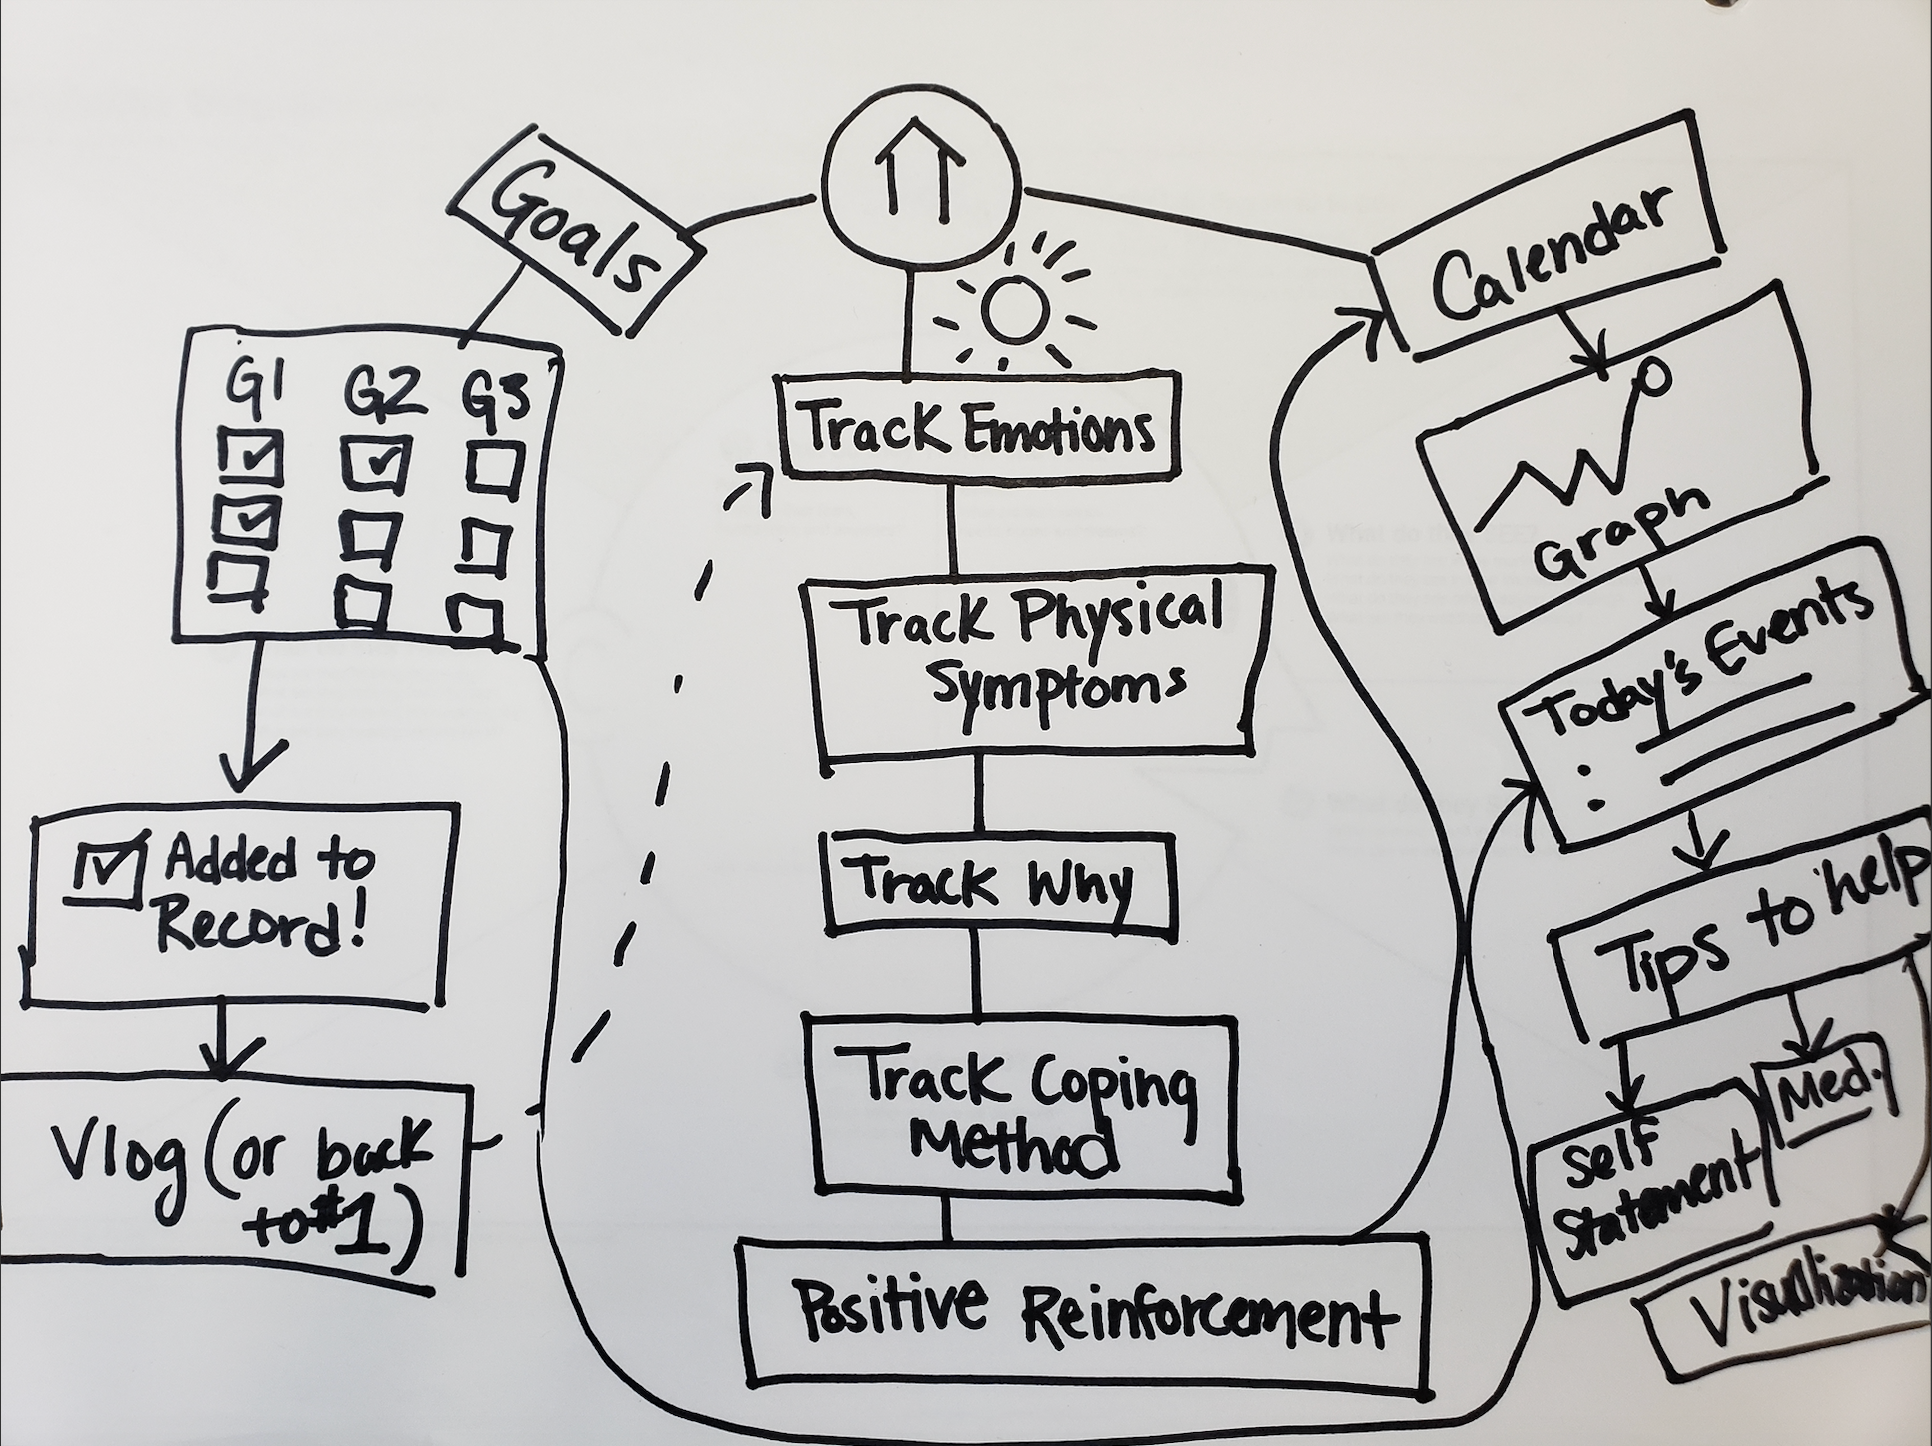 Goals
G1 G2 G3
Added to
Record!
Vlog (or back
to #1)
Track Emotions
Track Physical
Symptoms
Track Why
Track Coping
Method
Positive Reinforcement
Calendar
Graph
Today's Events
Tips to help
Self
Statement
Med.
Visualization